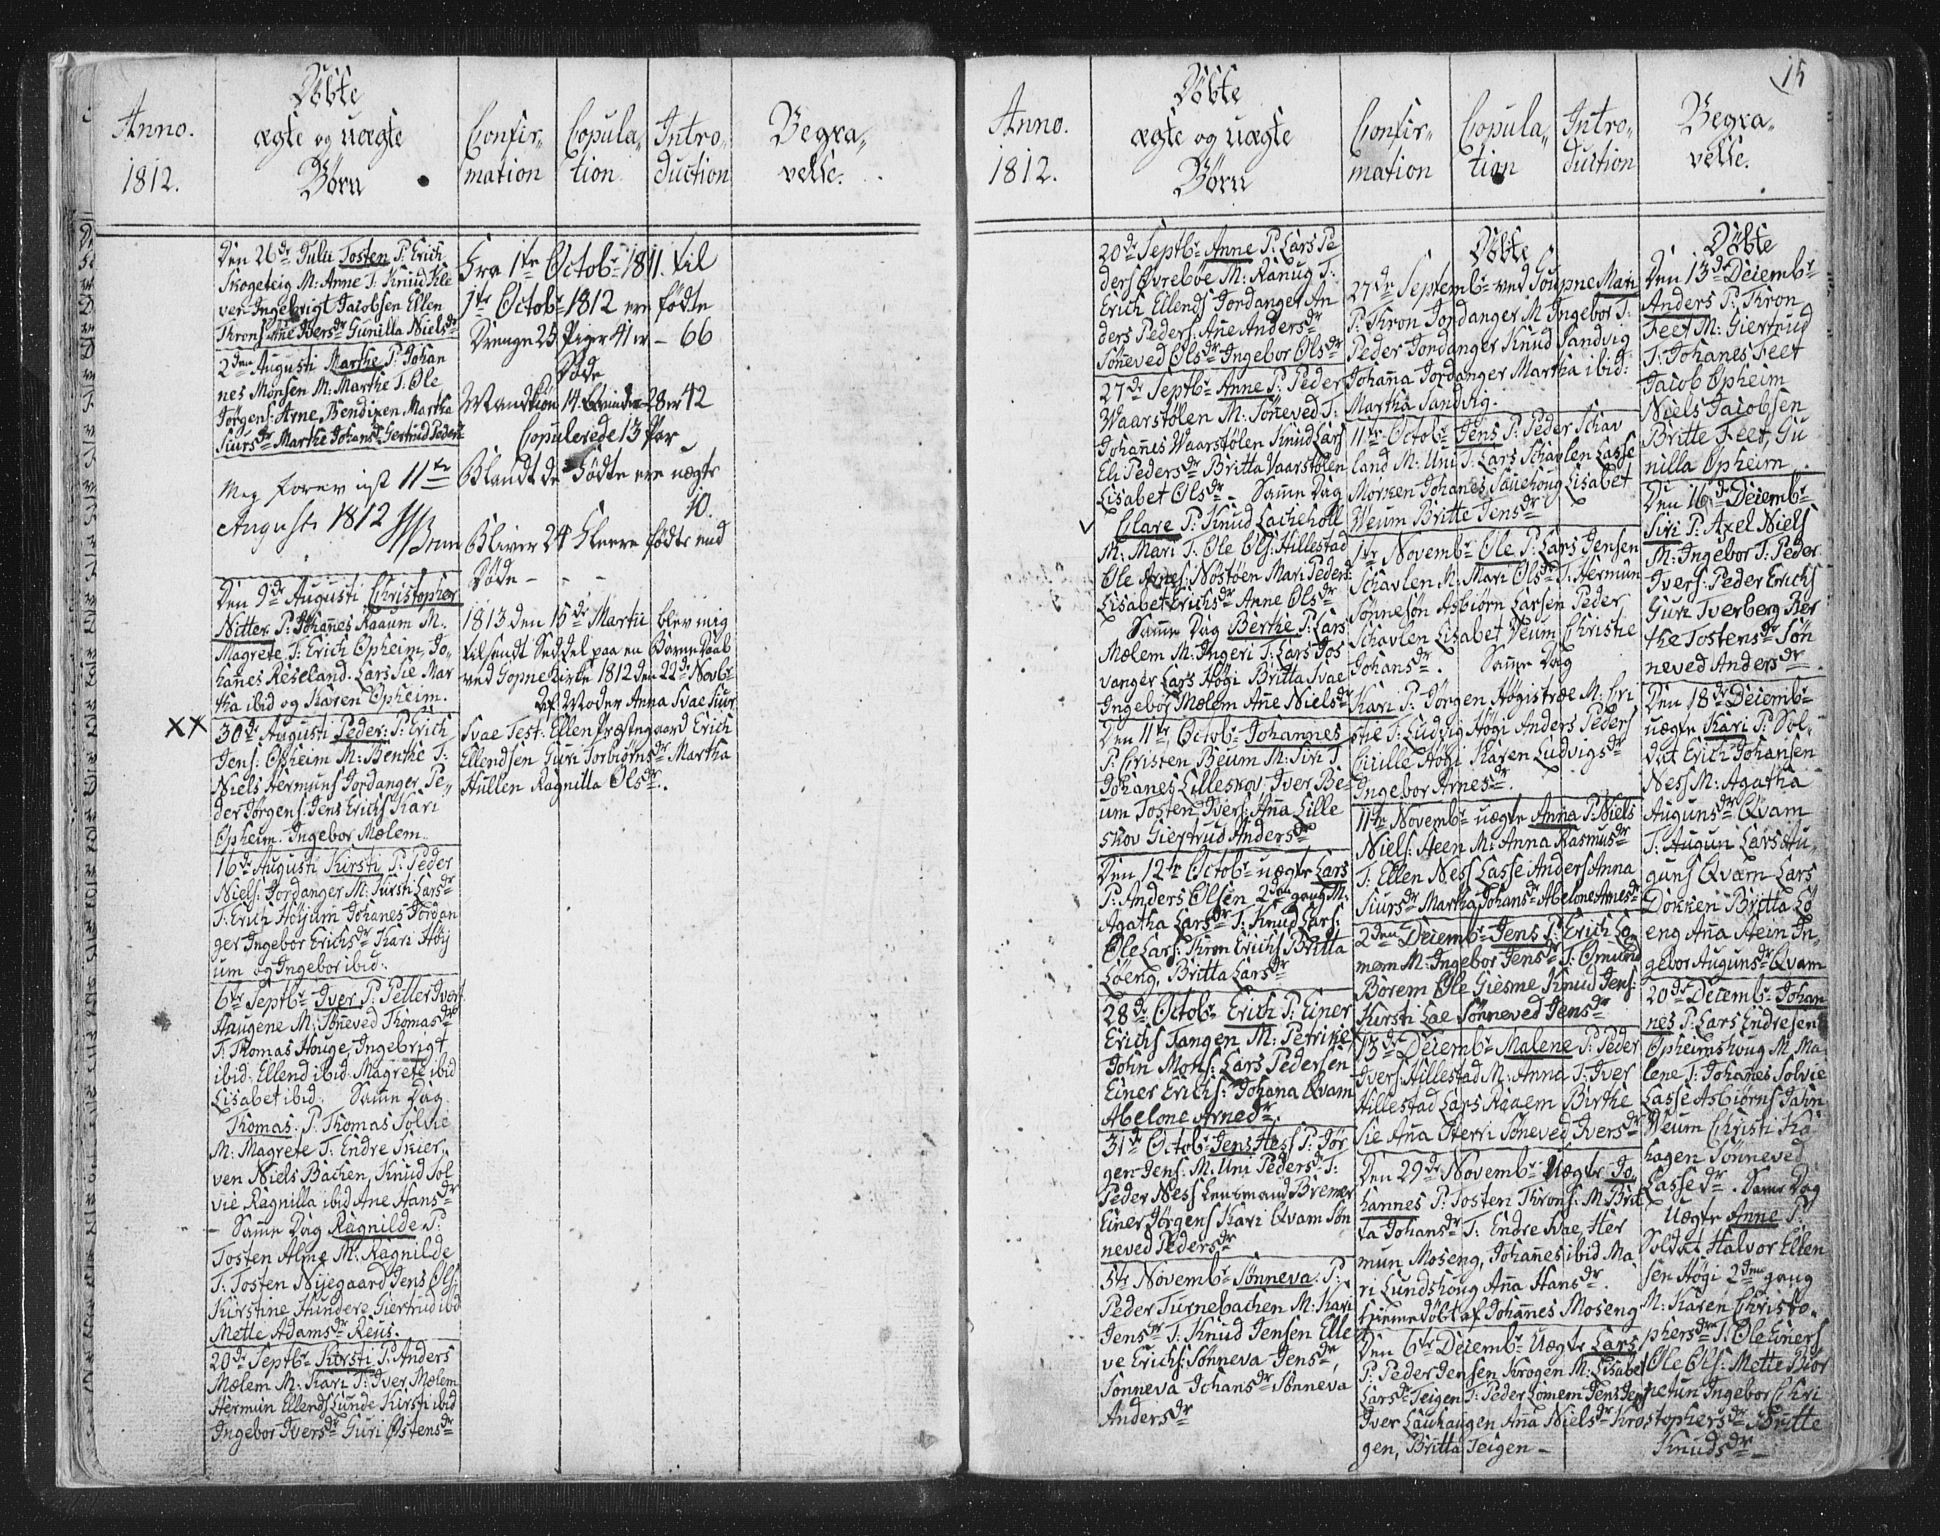 Anno.
1812.
Døbte
ægte og uægte
Børn
Confir-
mation
Copula-
tion
Intro-
duction
Begra-
velse.
Den 26de Julii Tosten P: Erich
Skogeteig M: Anne T: Knud Kle
ven Ingebrigt Jacobsen Ellen
Throns Ane Iversdr Gunilla Nielsdr
2den Augusti Marthe P: Johan
nes Monsen M: Marthe T: Ole
Jørgens: Arne Bendixen Martha
Siursdr Marthe Johansdr Gertrud Pedersdr
11te
Augusti 1812
Den 9de Augusti Christopher
Nitter P: Johañes Raaum M:
Magrete T: Erich Opheim, Jo-
hañes Reseland. Lars Sie Mar
tha ibid og Karen Opheim.
XX 30de Augusti Peder: P: Erich
Jens: Opheim M: Benthe T:
Niels Hermuns Jordanger Pe-
der Jørgens: Jens Erichs Kari
Opheim. Ingebor Mælem
16de Augusti Kirsti P: Peder
Niels: Jordanger M: Kirsti Larsdr
T: Erich Høyum Johanes Jordan
ger Ingebor Erichsdr Kari Høy
um og Ingebor ibid:
6te Septbr Iver P: Petter Ivers
Haugene M: Søneved Thomasdr
T: Thomas Houge, Ingebrigt
ibid: Ellend ibid. Magrete ibid
Lisabet ibid. Samme Dag
Thomas. P: Thomas Solvie
M: Magrete T: Endre Skier-
ven Niels Bachen, Knud Sol
vie Ragnilla ibid Ane Hansdr
- Samme Dag Ragnilde P:
Tosten Alme M: Ragnilde
T: Tosten Nijegaard Jens Ols:
Kirstine Hundere Giertrud ibd
Mette Adamsdr Reus.
20de Septbr Kirsti P: Anders
Mælem M: Kari T: Iver Mælem
Hermun Ellends Lunde Kirsti ibid
Ingebor Iversdr Guri Østensdr
Fra 1te Octobr 1811. til
1te Octobr 1812 ere fødte
Drenge 25 Piger 41 er - 66
Døde
Mandkiøn 14 Qvinder 28 er 42
Copulerede 13 Par
Blandt de Fødte ere uægte
10.
Bliver 24 fleere fødte end
Døde -
1813 den 15de Martii blev mig
tilsendt Seddel paa en Barne Daab
ved Sopne Kirke 1812 den 22de Novbr
Af Moder Anna Svae Siur
Svae Test: Ellen Præstegaard Erich
Ellendsen Guri Torbiørnsdr Martha
Hullen Ragnilla Olsdr.
15
Anno.
1812.
Døbte
ægte og uægte
Børn
Confir-
mation
Copula-
tion
Intro-
duction
Begra-
velse.
20de Septbr Anne P: Lars Pe
ders Øvrebøe M: Ranug T:
Erich Ellends Jordanger An
ders Peders: Ane Andersdr
Søneved Olsdr Ingebor Olsdr
27de Septbr Anne P: Peder
Waarstølen M: Søneved T:
Johañes Waarstølen Knud Lars
Eli Pedersdr Britta Vaarstølen
Lisabet Olsdr - Samme Dag
Clare P: Knud Lacheholl
M: Mari T: Ole Ols: Hillestad
Ole Arnes: Nostøen Mari Pedersd:
Lisabet Erichsdr Anne Olsdr
Samme Dag Berthe P: Lars
Mælem M: Ingeri T: Lars Jos
vanger Lars Høgi Britta Svae
Ingebor Mælem Ane Nielsdr
Den 11te Octobr Johannes
P: Cristen Beum M: Siri T:
Johanes Lilleskov Iver Be-
um Tosten Ivers: Aña Lille
skov Giertrud Andersdr
Den 12te Octobr uægte Lars
P: Anders Olsen 2den gang M:
Agatha Larsdr T: Knud Lars,
Ole Lars: Thron Erichs Britta
Løeng, Britta Larsdr
28de Octobr Erich P: Einer
Erichs Tangen M: Petrike
John Mons: Lars Pedersen
Einer Erichs: Johana Qvam
Abelone Arnedr.
31te Octobr Jens Hess P: Jør
gen Jens: M: Uni Pedersdr T:
Peder Ness Lensmand Bremer
Einer Jørgens Kari Qvam Søn
neved Pedersdr
5te Novembr Sønneva. P:
Peder Turnebachen M: Kari
Jensdr T: Knud Jensen Elle
ve Erichs: Sønneva Jensdr,
Sønneva Johansdr Sønneva
Andersdr
Døbte
27de Septembr ved Soupne Mari
P: Thron Jordanger M Ingebor T:
Peder Jordanger Knud Sandvig
Johaña Jordanger Martha ibid:
Martha Sandvig.
11te Octobr Jens P: Peder Schav
land M: Uni T: Lars Schavlen Lasse
Mørken Johanes Sauehoug Lisabet
Weum Britte Jensdr
1te Novembr Ole P: Lars Jensen
Schavlen M: Mari Olsdr T: Hermun
Sønnesøn Asbiørn Larsen Peder
Schavlen Lisabet Veum Christie
Johansdr. Samme Dag
Kari P: Jørgen Høgistræe M: Cri
stie T: Ludvig Høgi Anders Peders
Cirille Høgi Karen Ludvigsdr
Ingebor Arnesdr.
11te Novembr uægte Anna P: Niels
Niels: Heen M: Anna Rasmusdr
T: Ellen Ness Lasse Anders Anna
Siursdr Martha Johansdr Abelone Arnesdr
2den Decembr Jens P: Erich Lo
mem M: Ingebor Jensdr T: Omund
Borem Ole Giesme Knud Jens:
Kirsti Lae Sønneved Jensdr
13de Decembr Malene P: Peder
Ivers: Hillestad M: Anna T: Iver
Hillestad Lars Raaem Birthe
Sie Aña Oterri Søneved Iversdr
Den 29de Novembr Uægte Jo-
hannes P: Tosten Throns: M: Brit
ta Johansdr T: Endre Kae, Her
mun Moseng, Johañes ibid Ma
ri Lundshoug Aña Hansdr
Hiemedøbt af Johañes Moseng
Den 6te Decembr Uægte Lars
P: Peder Jensen Krogen M: Lisabet
Larsdr Teigen T: Peder Lomem Jens Jens
Iver Lauhaugen Ana Nielsdr Kro
gen, Britta Teigen -
Døbte
Den 13de Decembr
Anders P: Thron
Feet M: Giertrud
T: Johanes Feet
Jacob Opheim
Niels Jacobsen
Britte Feet, Gu
nilla Opheim
Den 16de Decembr
Siri P: Axel Niels
M: Ingebor T: Peder
Ivers: Peder Erichs
Guri Tverberg Ber
the Tostensdr Søn
neved Andersdr
Den 18de Decembr
uægte Kari P: Sol-
dat Erich Johansen
Ness M: Agatha
Augunsdr Qvam
T: Augun Lars Au-
guns Qvam Lars
Dokken Britta Lø
eng Aña Hein In-
gebor Augunsdr Qvam
20de Decembr Johan
nes P: Lars Endresen
Opheimshoug M: Ma-
lene T: Johañes Solvie
Lasse Asbiørns Jahn
Weum Christi Ha
hagen Sønneved
Lassedr. Samme Dag
Uægte Anne P:
Soldat Halvor Ellen
sen Høgi 2den gang
M: Karen Christo-
phersdr T: Ole Einers
Ole Ols: Mette Biør
netun Ingebor Chri
stophersdr Britte
Knudsdr -